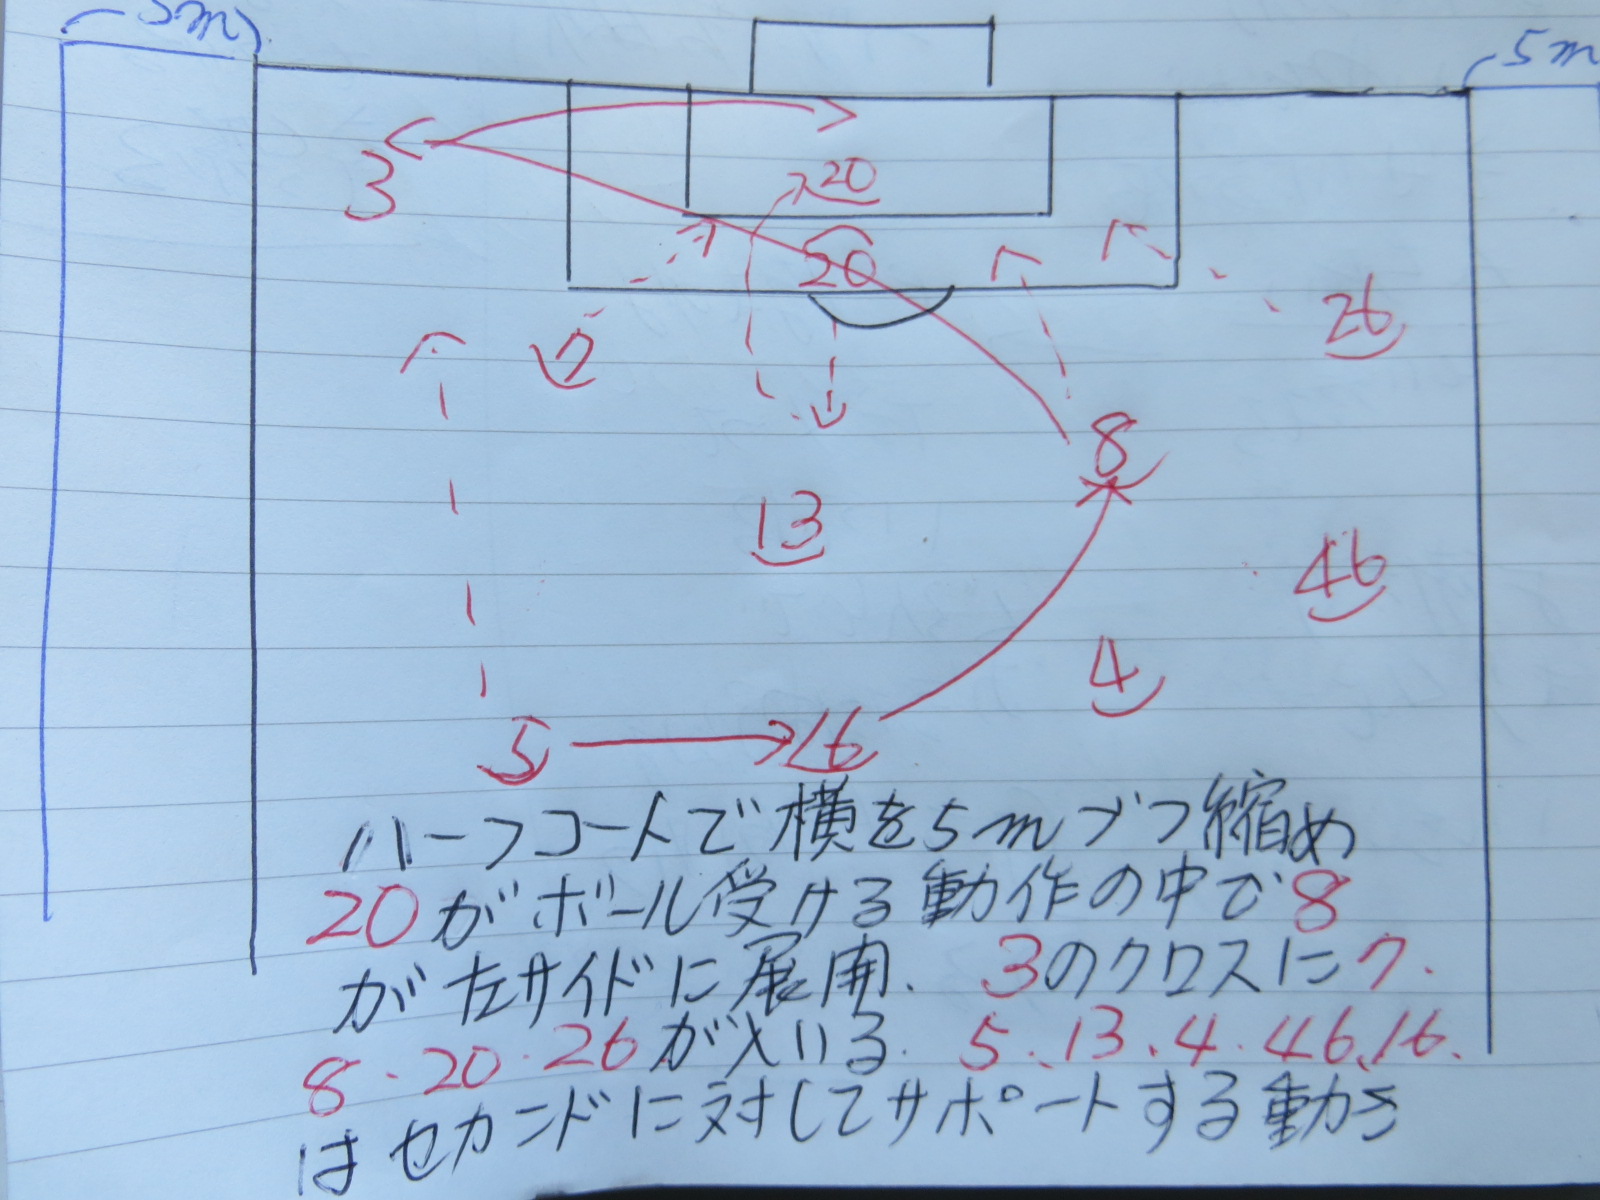 5m
5m
3
20
20
26
7
8
13
46
4
5
16
ハーフコートで横を5mヅつ縮め
20がボール受ける動作の中で8
が左サイドに展開. 3のクロスに7.
8.20.26が入いる. 5.13.4.46.16.
はセカンドに対してサポートする動き